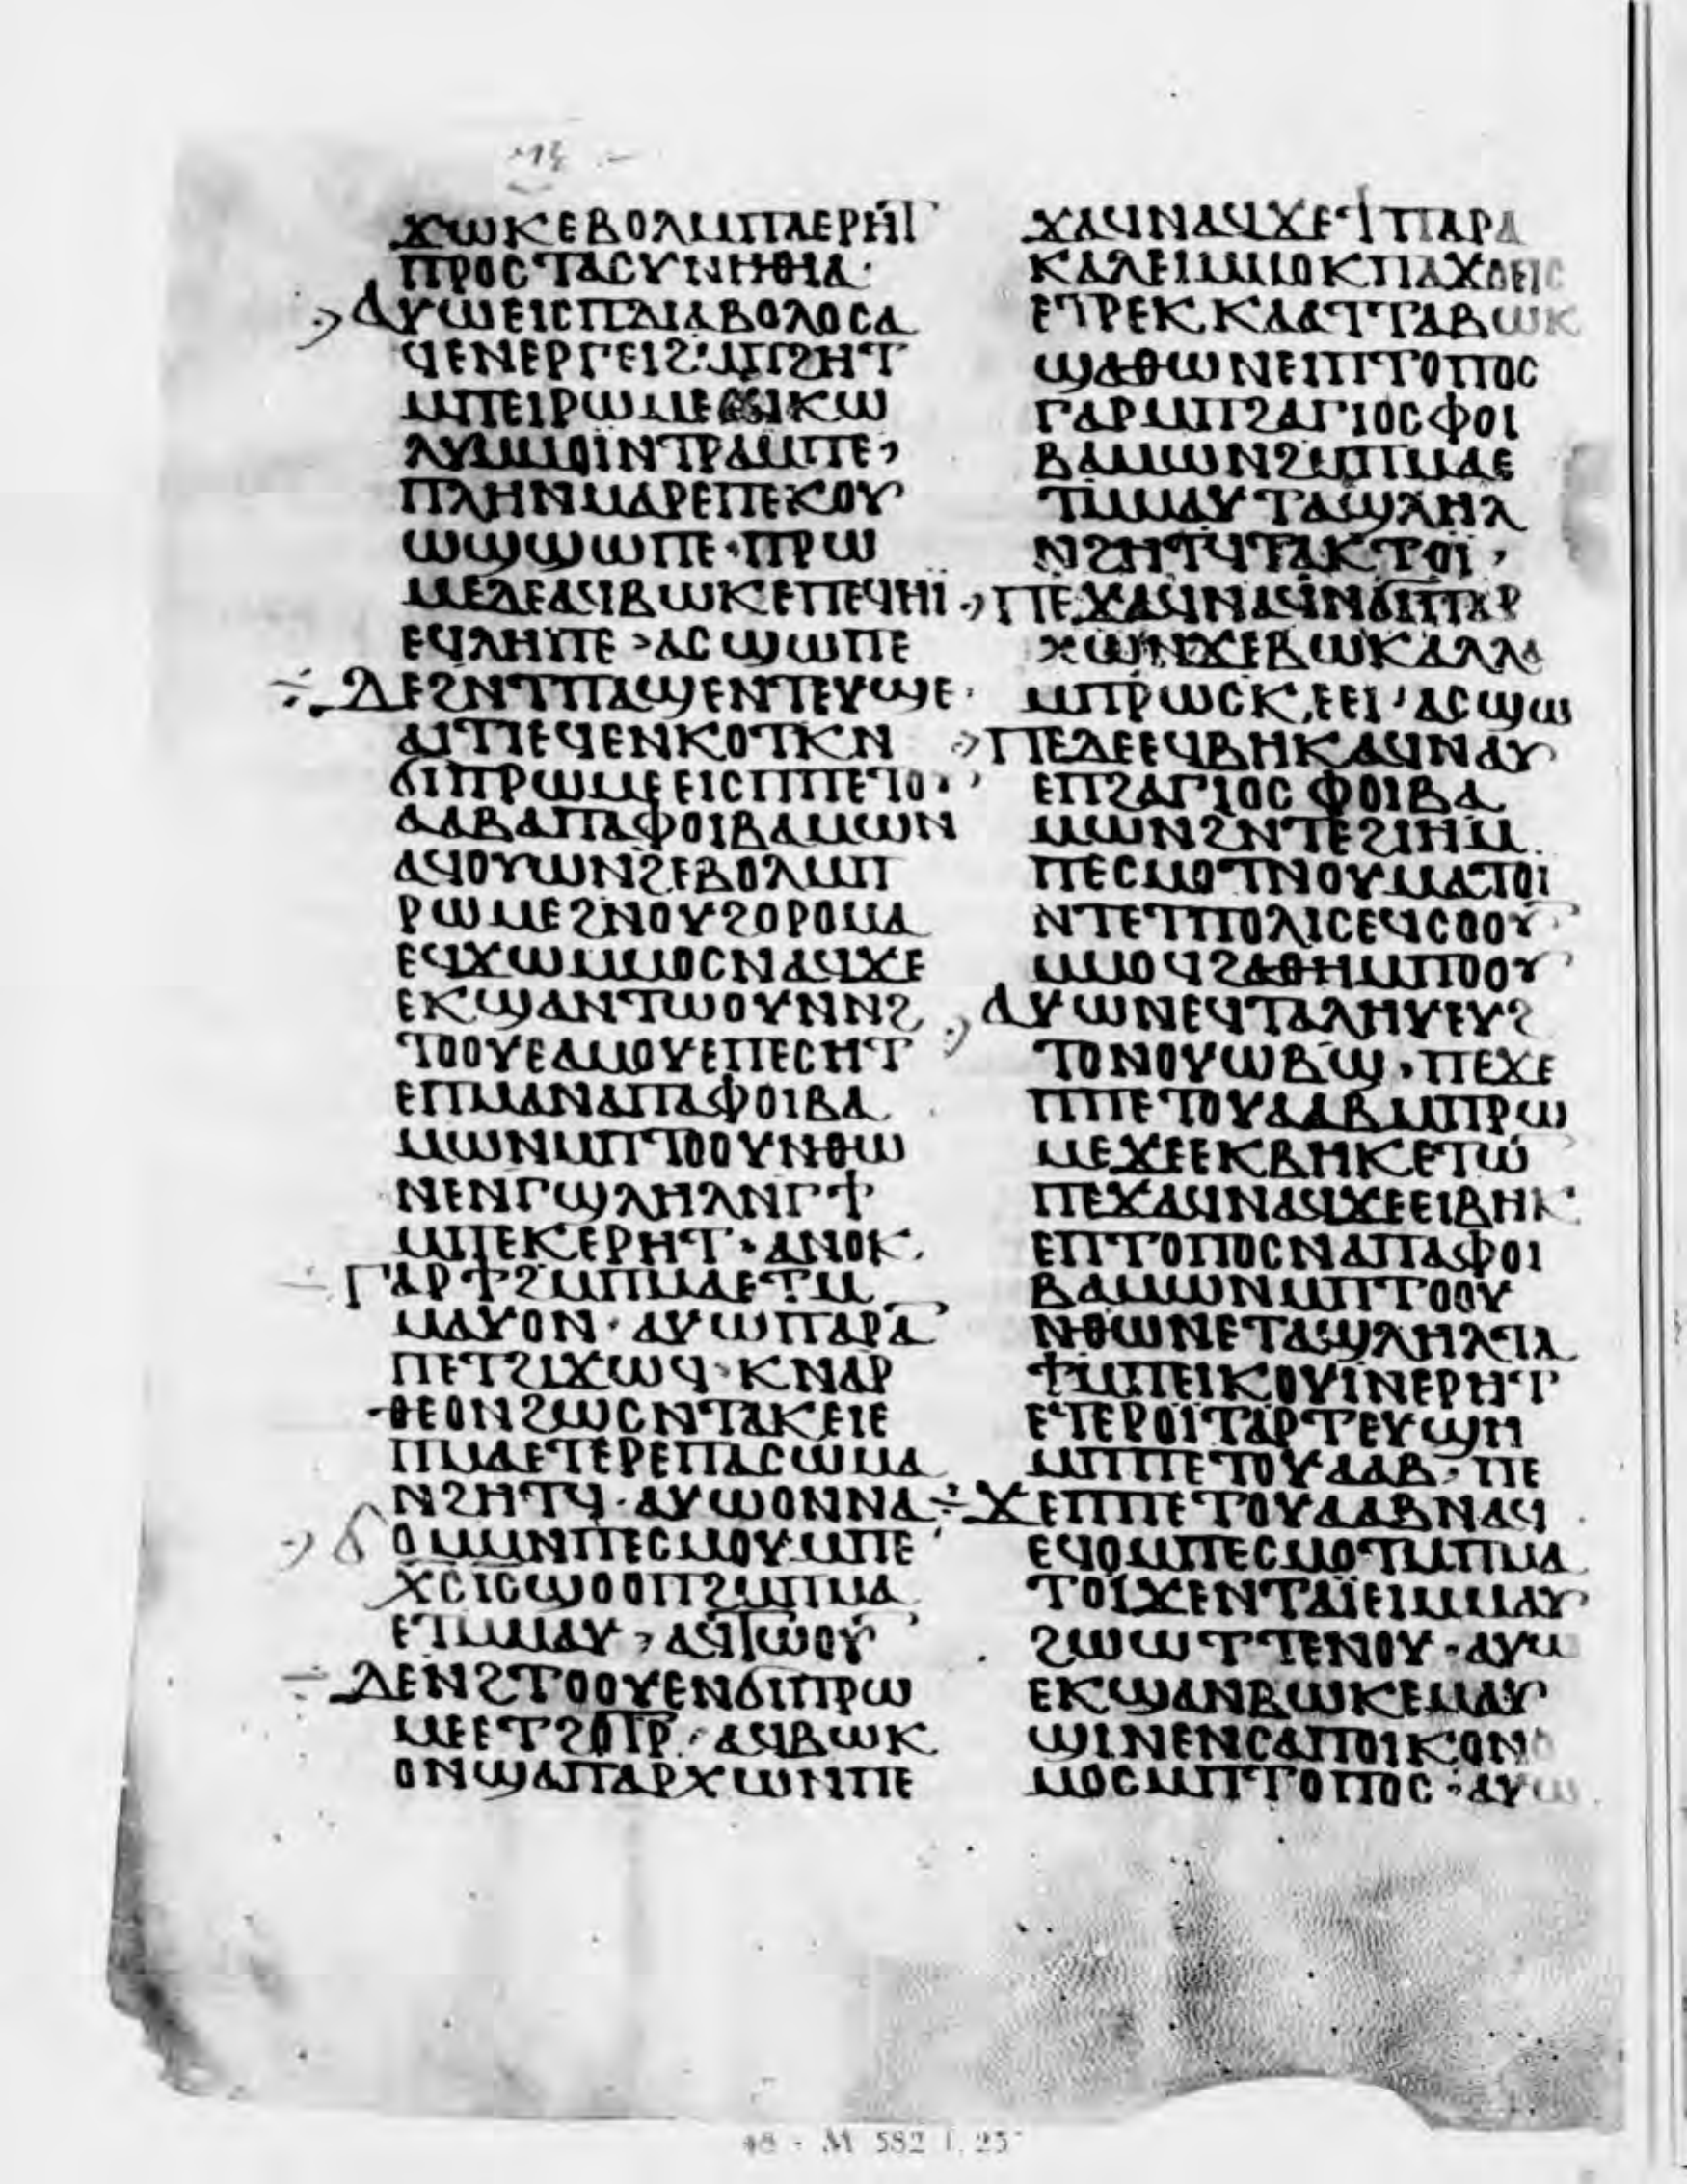 ϪⲰⲔⲈⲂⲞⲖⲘⲠⲀⲈⲢⲎⲦ
ⲠⲢⲞⲤⲦⲀⲤⲨⲚⲎⲐⲒⲀ·
ⲀⲨⲰⲈⲒⲤⲠⲆⲒⲀⲂⲞⲖⲞⲤⲀ
ϤⲈⲚⲈⲢⲄⲈⲒϨⲘⲠϨⲎⲦ
ⲘⲠⲈⲒⲢⲰⲘⲈ ⲔⲰ
ⲖⲨⲘⲘⲞⲒⲚⲦⲢⲀⲘⲠⲈ,
ⲠⲖⲎⲚⲘⲀⲢⲈⲠⲈⲔⲞⲨ
ⲰϢϢⲰⲠⲈ·ⲠⲢⲰ
ⲘⲈⲆⲈⲀϤⲂⲰⲔⲈⲠⲈϤⲎⲒ
ⲈϤⲖⲎⲠⲈ>ⲀⲤϢⲰⲠⲈ
ⲆⲈϨⲚⲦⲠⲀϢⲈⲚⲦⲈⲨϢⲈ·
ⲀⲒⲦⲒⲈϤⲈⲚⲔⲞⲦⲔⲚ
ϬⲒⲠⲢⲰⲘⲈⲈⲒⲤⲠⲠⲈⲦⲞⲨ
ⲀⲀⲂⲀⲠⲀⲪⲞⲒⲂⲀⲘⲰⲚ
ⲀϤⲞⲨⲰⲚϨⲈⲂⲞⲖⲘⲠ
ⲢⲰⲘⲈϨⲚⲞⲨϨⲞⲢⲞⲘⲀ
ⲈϤϪⲰⲘⲘⲞⲤⲚⲀϤϪⲈ
ⲈⲔϢⲀⲚⲦⲰⲞⲨⲚⲚϨ
ⲦⲞⲞⲨⲈⲀⲘⲞⲨⲈⲠⲈⲤⲎⲦ
ⲈⲠⲘⲀⲚⲀⲠⲀⲪⲞⲒⲂⲀ
ⲘⲰⲚⲘⲠⲦⲞⲞⲨⲚⲐⲰ
ⲚⲈⲚⲄϢⲖⲎⲖⲚⲄϮ
ⲘⲠⲈⲔⲈⲢⲎⲦ·ⲀⲚⲞⲔ
ⲄⲀⲢϮϨⲘⲠⲘⲀⲈⲦⲘ
ⲘⲀⲨⲞⲚ·ⲀⲨⲰⲠⲀⲢⲀ
ⲠⲈⲦϨⲒϪⲰϤ·ⲔⲚⲀⲢ
ⲐⲈⲞⲚϨⲰⲤⲚⲦⲀⲔⲈⲒⲈ
ⲠⲘⲀⲈⲦⲈⲢⲈⲠⲀⲤⲰⲘⲀ
ⲚϨⲎⲦϤ·ⲀⲨⲰⲞⲚⲚⲀ
ϬⲞⲘⲘⲚⲠⲈⲤⲘⲞⲨⲘⲠⲈ
ⲬⲤⲒⲤϢⲞⲞⲠϨⲘⲠⲘⲀ
ⲈⲦⲘⲘⲀⲨ,ⲀϤⲦⲰⲞⲨ
ⲆⲈⲚϨⲦⲞⲞⲨⲈⲚϬⲒⲠⲢⲰ
ⲘⲈⲈⲦϨⲞⲦⲢ·ⲀϤⲂⲰⲔ
ⲞⲚϢⲀⲠⲀⲢⲬⲰⲚⲠⲈ
ϪⲀϤⲚⲀϤϪⲈϮⲠⲀⲢⲀ
ⲔⲀⲖⲈⲒⲘⲘⲞⲔⲠⲀϪⲞⲈⲒⲤ
ⲈⲦⲢⲈⲔⲔⲀⲀⲦⲦⲀⲂⲰⲔ
ϢⲀⲐⲰⲚⲈⲠⲦⲞⲠⲞⲤ
ⲄⲀⲢⲘⲠϨⲀⲄⲒⲞⲤⲪⲞⲒ
ⲂⲀⲘⲰⲚϨⲘⲠⲘⲀⲈ
ⲦⲘⲘⲀⲨⲦⲀϢⲖⲎⲖ
ⲚϨⲎⲦϤⲦⲀⲔⲦⲞⲒ,
ⲠⲈϪⲀϤⲚⲀϤⲚϬⲒⲠⲀⲢ
ⲬⲰⲚϪⲈⲂⲰⲔⲀⲖⲖⲀ
ⲘⲠⲢⲰⲤⲔⲈⲈⲒ,ⲀⲤϢⲰ
ⲠⲈⲆⲈⲈϤⲂⲎⲔⲀϤⲚⲀⲨ
ⲈⲠϨⲀⲄⲒⲞⲤⲪⲞⲒⲂⲀ
ⲘⲰⲚϨⲚⲦⲈϨⲒⲎⲘ
ⲠⲈⲤⲘⲞⲦⲚⲞⲨⲘⲀⲦⲞⲒ
ⲚⲦⲈⲦⲠⲞⲖⲒⲤⲈϤⲤⲞⲞⲨ
ⲘⲘⲞϤϨⲀⲐⲎⲘⲠⲞⲞⲨ
ⲀⲨⲰⲚⲈϤⲦⲀⲖⲎⲨⲈⲨϨ
ⲦⲞⲚⲞⲨⲰⲂϢ·ⲠⲈϪⲈ
ⲠⲠⲈⲦⲞⲨⲀⲀⲂⲘⲠⲢⲰ
ⲘⲈϪⲈⲈⲔⲂⲎⲔⲈⲦⲰ
ⲠⲈϪⲀϤⲚⲀϤϪⲈⲈⲒⲂⲎⲔ
ⲈⲠⲦⲞⲠⲞⲤⲚⲀⲠⲀⲪⲞⲒ
ⲂⲀⲘⲰⲚⲘⲠⲦⲞⲞⲨ
ⲚⲐⲰⲚⲈⲦⲀϢⲖⲎⲖⲦⲀ
ϮⲘⲠⲈⲒⲔⲞⲨⲒⲚⲈⲢⲎⲦ
ⲈⲦⲈⲢⲞⲒⲦⲀⲢⲦⲈⲨϢⲎ
ⲘⲠⲠⲈⲦⲞⲨⲀⲀⲂ,ⲠⲈ
ϪⲈⲠⲠⲈⲦⲞⲨⲀⲀⲂⲚⲀϤ
ⲈϤⲞⲘⲠⲈⲤⲘⲞⲦⲘⲠⲘⲀ
ⲦⲞⲒϪⲈⲚⲦⲀⲒⲈⲒⲘⲘⲀⲨ
ϨⲰⲰⲦⲦⲈⲚⲞⲨ·ⲀⲨⲰ
ⲈⲔϢⲀⲚⲂⲰⲔⲈⲘⲀⲨ
ϢⲒⲚⲈⲚⲤⲀⲠⲞⲒⲔⲞⲚⲞ
ⲘⲞⲤⲘⲠⲦⲞⲠⲞⲤ·ⲀⲨⲰ
M 582 f. 25